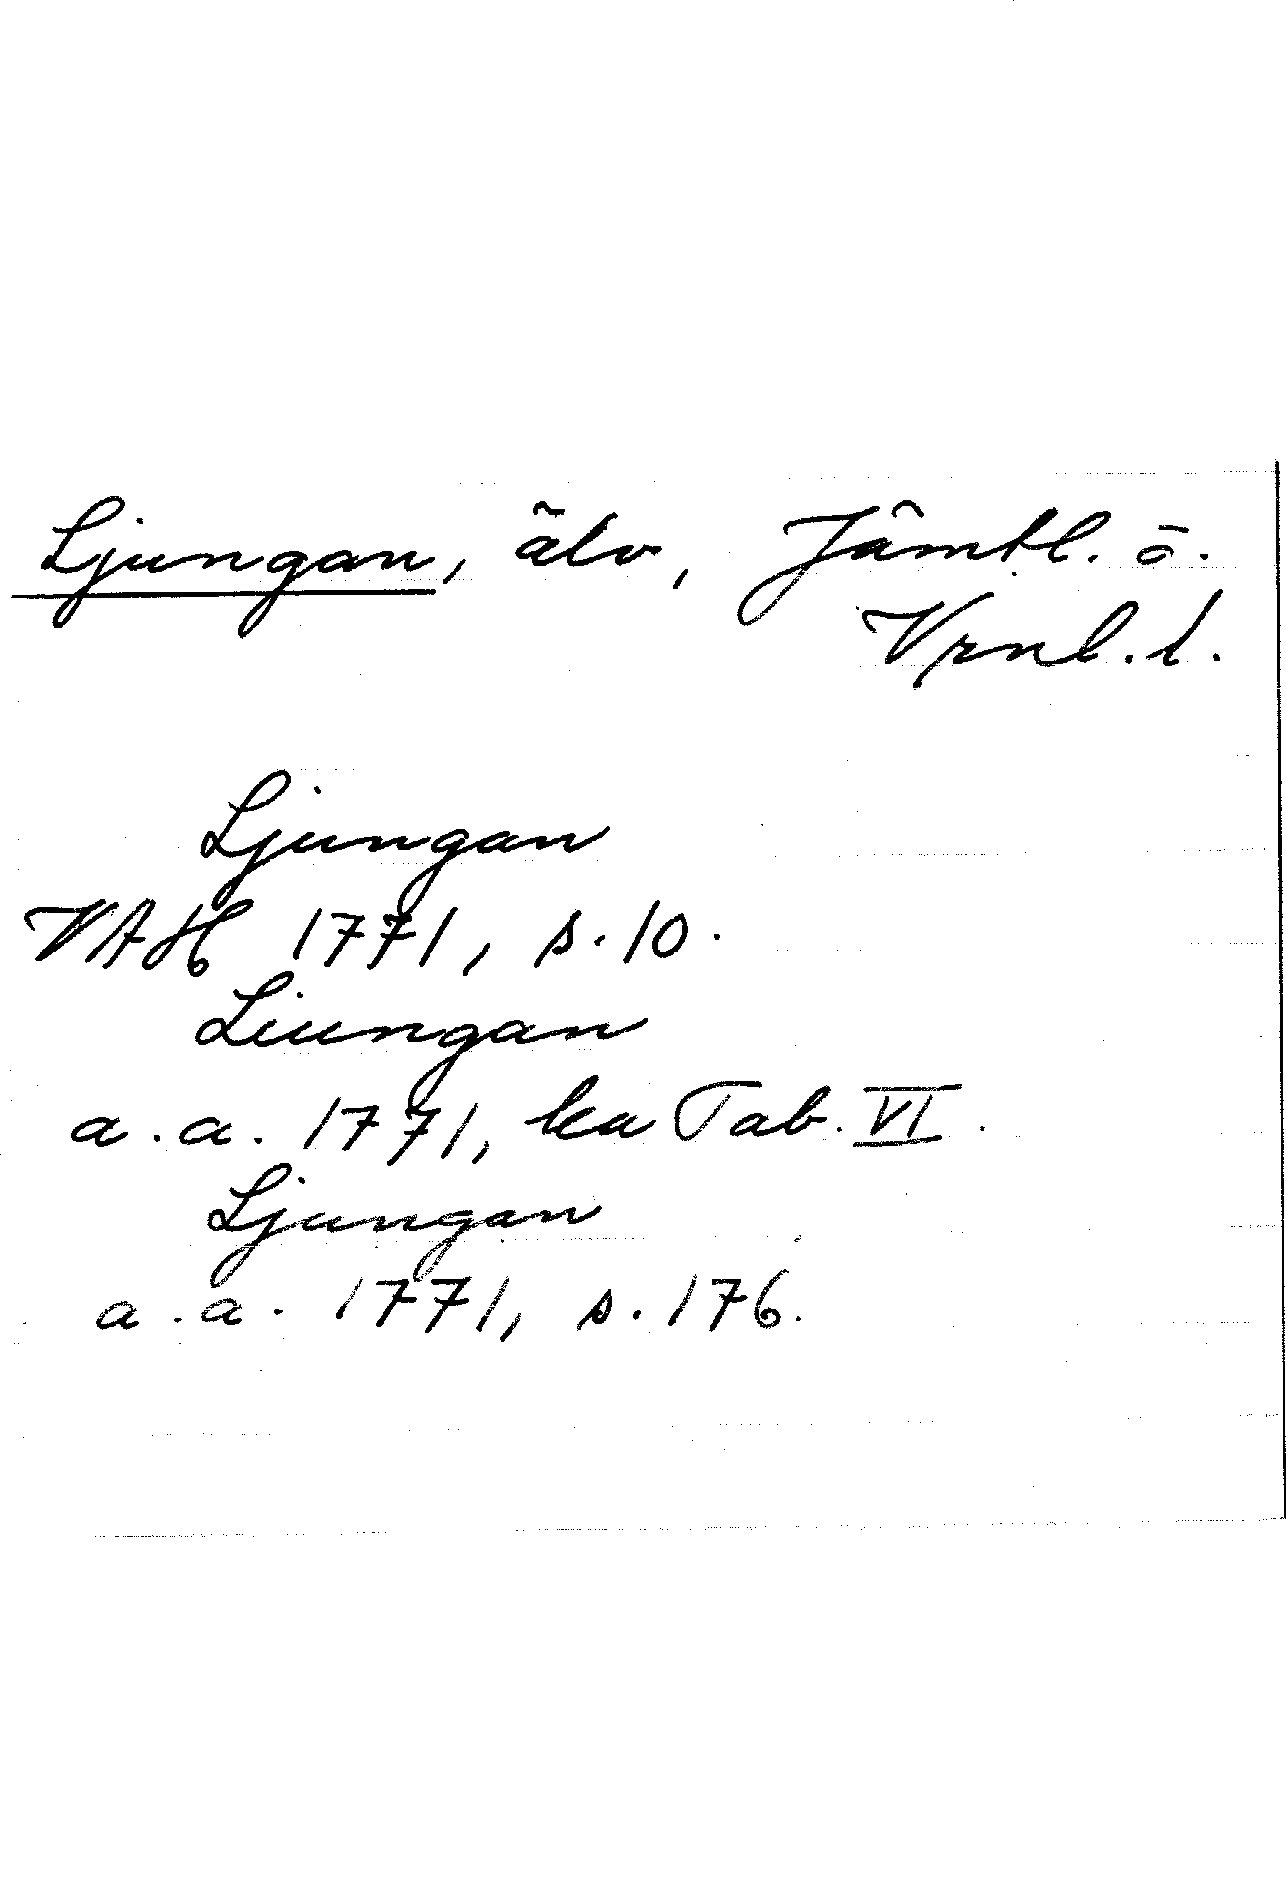 Ljungan, älv, Jämtl. o.
Vrnl. l.
Ljungan
VAH 1771, s. 10.
Liungan
a. a. 1771, ka Tab. VI.
Ljungan
a. a. 1771, s. 176.